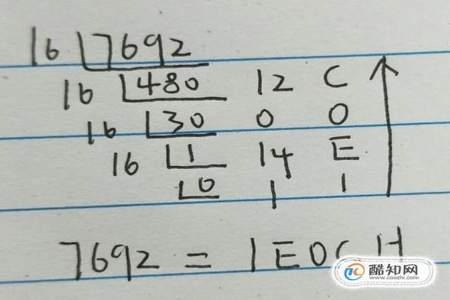 16 7692
16 480 12 C
16 30 0 0
16 1 14 E
0 1 1
7692 = 1E0CH
酷知网